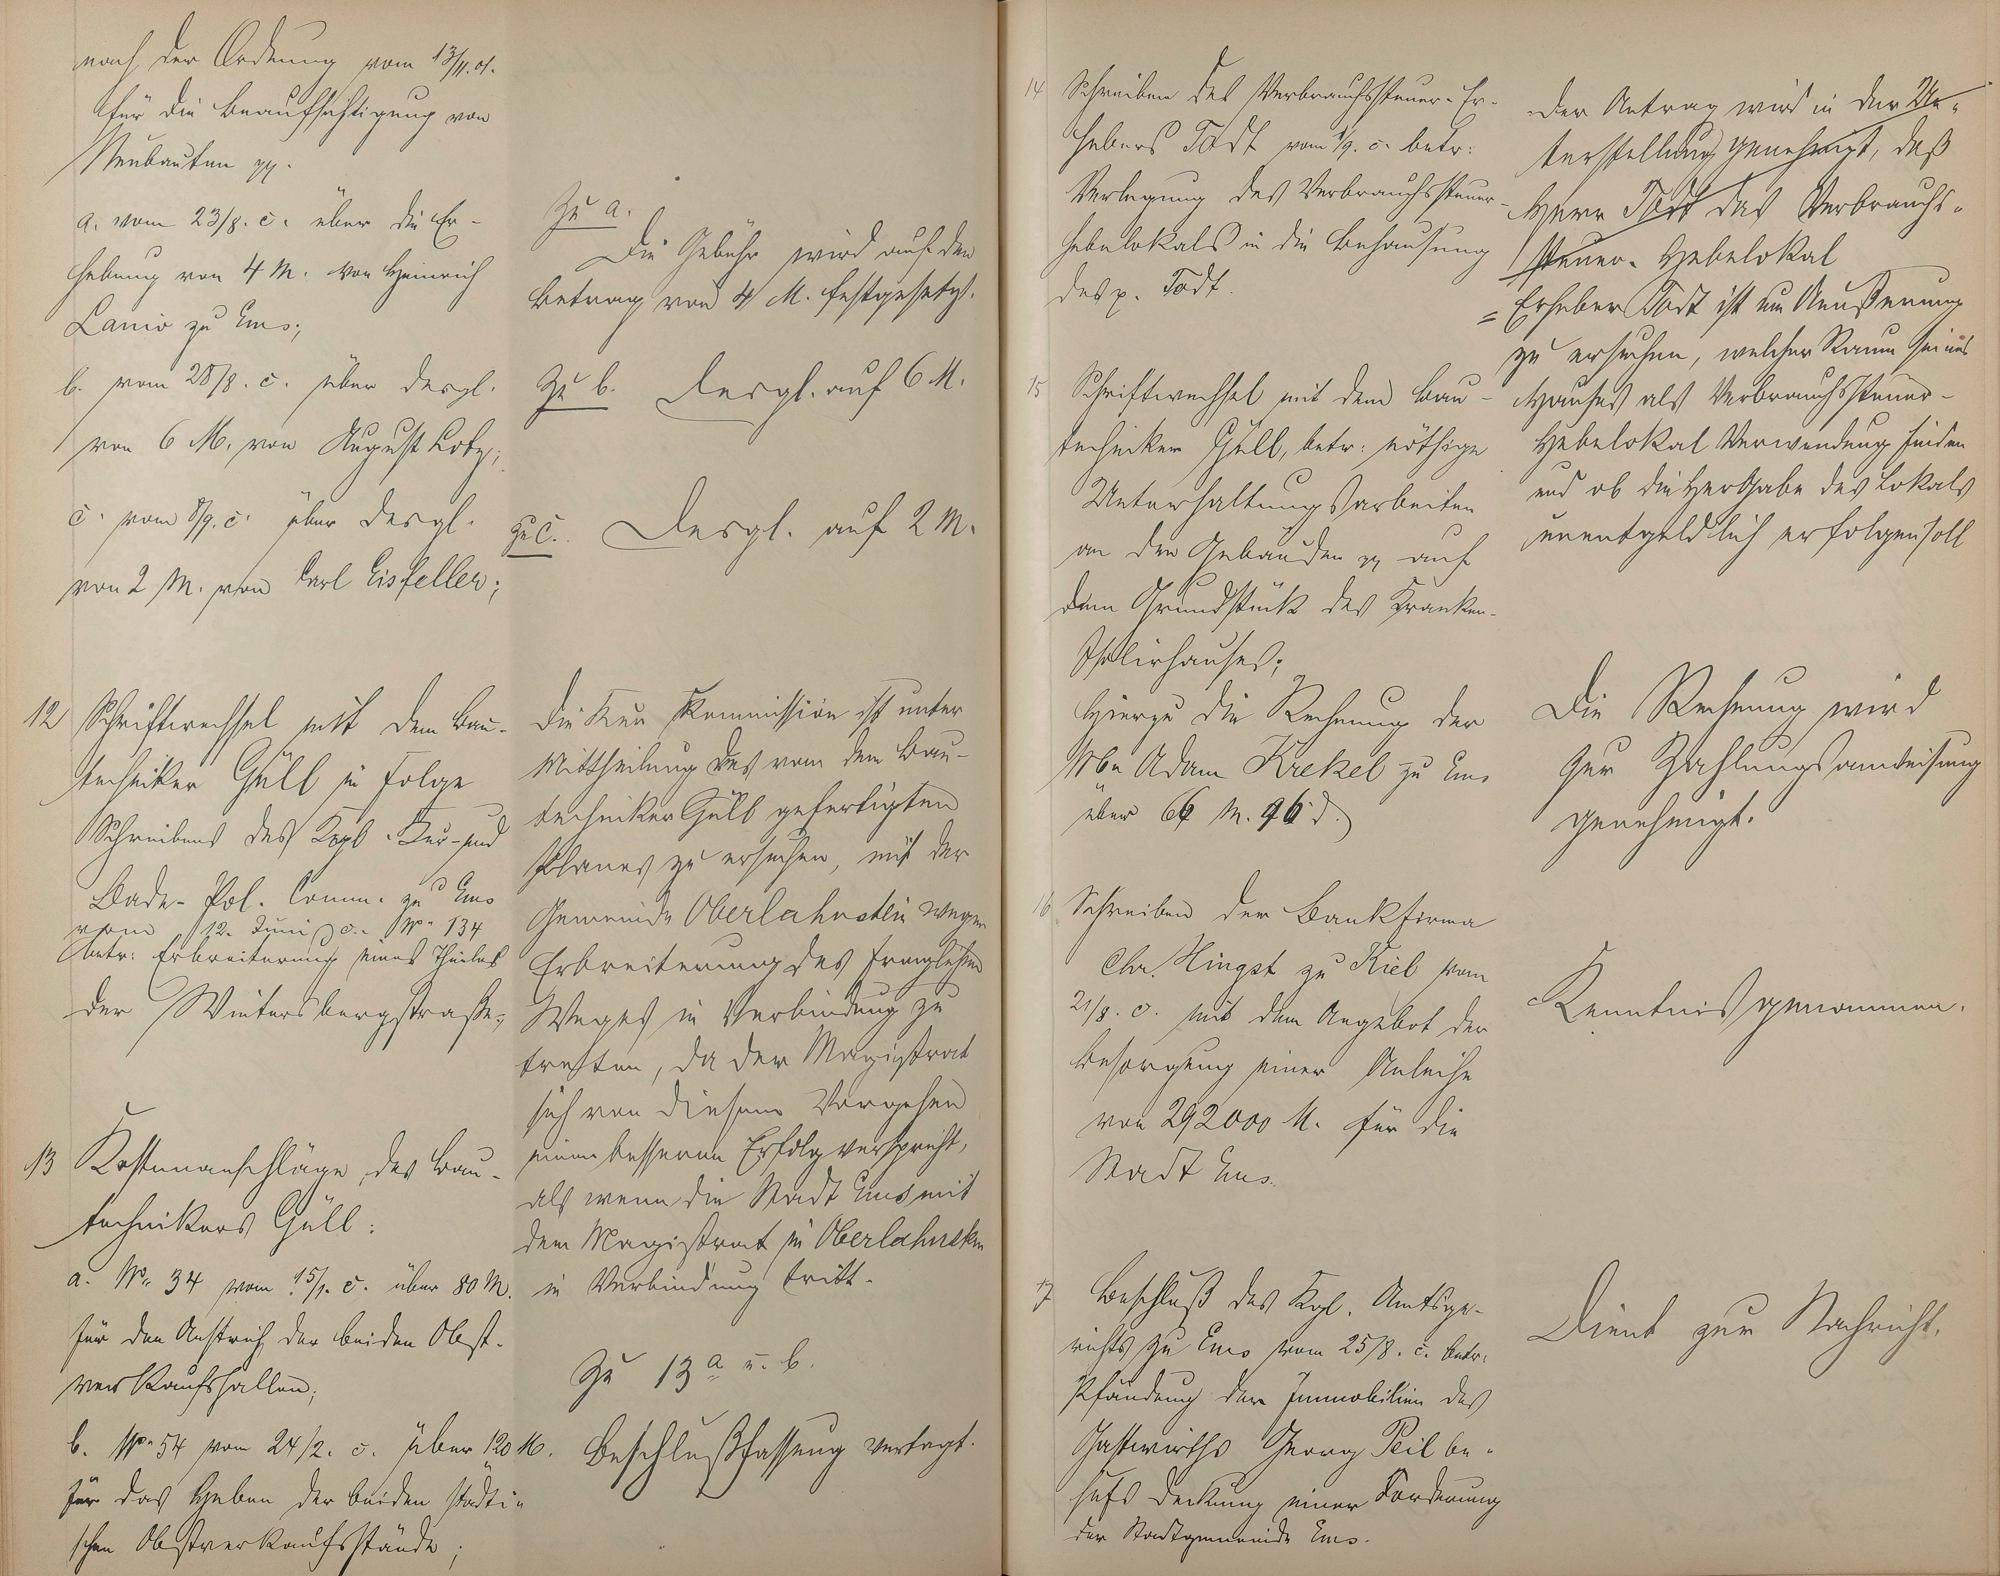 nach der Ordnung vom 13/11.01.
für die Beaufsichtigung von
Neubauten pp.
a. vom 23/8. c. über die Er-
hebung von 4 M. von Heinrich
Lanio zu Ems;
b. vom 28/8. c. über desgl.
von 6 M. von August Lotz;
c. vom 8/9. c. über desgl.
von 2 M. von Carl Eisfeller;
Zu a.
Die Gebühr wird auf den
Betrag von 4 M. festgesetzt.
Zu b. Desgl. auf 6 M.
Zu c. Desgl. auf 2 M.
12 Schriftwechsel mit dem Bau-
techniker Güll in Folge
Schreibens des Kgl. Kur- und
Bade-Pol. Comm. zu Ems
vom 12. Juni c. No 134
betr: Erbreiterung eines Theiles
der Wintersbergstraße;
Die Kur Kommission ist unter
Mittheilung des von dem Bau-
techniker Güll gefertigten
Planes zu ersuchen, mit der
Gemeinde Oberlahnstein wegen
Erbreiterung des fraglichen
Weges in Verbindung zu
tretten, da der Magistrat
sich von diesem Vorgehen
einen besseren Erfolg verspricht,
als wenn die Stadt Ems mit
dem Magistrat in Oberlahnstein
in Verbindung tritt.
13 Kostenanschläge des Bau-
technikers Güll:
a. No 34 vom 15/1. c. über 80 M.
für den Anstrich der beiden Obst-
verkaufshallen;
b. No 54 vom 24/2. c. über 120 M.
für das Heben der beiden städti-
schen Obstverkaufsstände;
Zu 13 a u. b.
Beschlußfassung vertagt.
14 Schreiben des Verbrauchssteuer-Er-
hebers Todt vom 1/9. c. betr:
Verlegung des Verbrauchssteuer-
hebelokals in die Behausung
des p. Todt.
Der Antrag wird in der Un-
terstellung genehmigt, daß
Herr Todt das Verbrauchs-
steuer-Hebelokal
= Erheber Todt ist um Aeußerung
zu ersuchen, welcher Raum seines
Hauses als Verbrauchssteuer-
Hebelokal Verwendung finden
und ob die Hergabe des Lokals
unentgeldlich erfolgen soll
15 Schriftwechsel mit dem Bau-
techniker Güll, betr: nöthige
Unterhaltungsarbeiten
an den Gebäuden pp auf
dem Grundstück des Kranken-
Isolirhauses;
Hierzu die Rechnung der
Wwe Adam Krekel zu Ems
über 66 M. 96 d.)
Die Rechnung wird
zur Zahlungsanweisung
genehmigt.
16 Schreiben der Bankfirma
Chr. Hingst zu Kiel vom
21/8. c. mit dem Angebot der
Besorgung einer Anleihe
von 292000 M. für die
Stadt Ems.
Kenntniß genommen.
17 Beschluß des Kgl. Amtsge-
richts zu Ems vom 25/8. c. betr:
Pfändung der Immobilien des
Gastwirths Georg Peil be-
hufs Deckung einer Forderung
der Stadtgemeinde Ems.
Dient zur Nachricht.